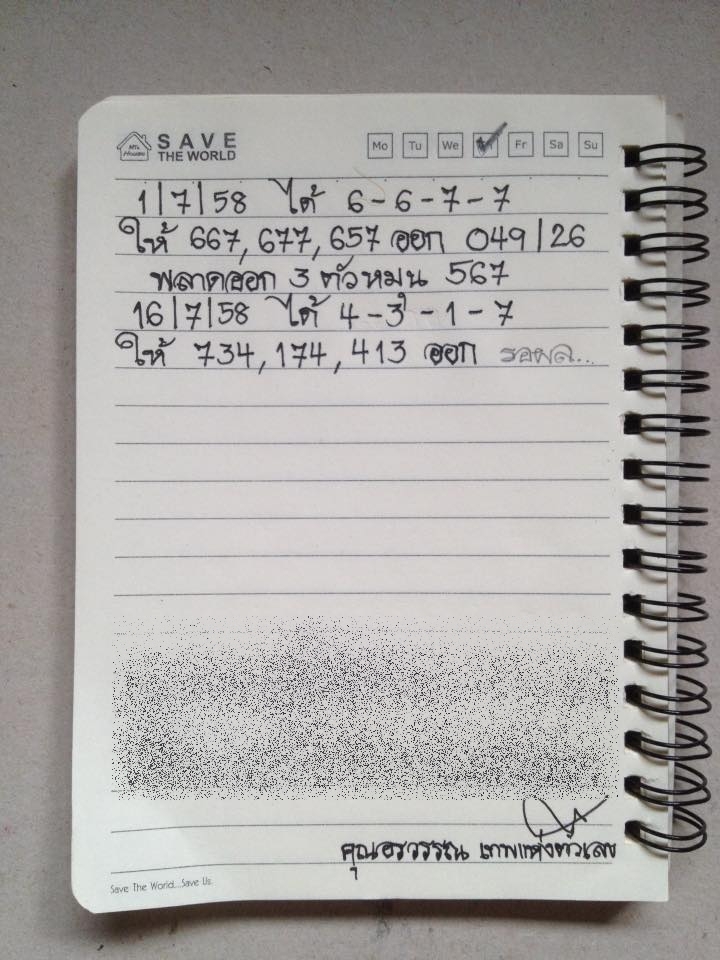 MTL House SAVE THE WORLD Mo Tu We Fr Sa Su
1/7/58 ได้ 6-6-7-7
ให้ 667, 677, 657 ออก 049/26
พลาดออก 3 ตัวหมุน 567
16/7/58 ได้ 4-3-1-7
ให้ 734, 174, 413 ออก รอผล...
คุณอรวรรณ เทพแห่งตัวเลข
Save The World...Save Us.